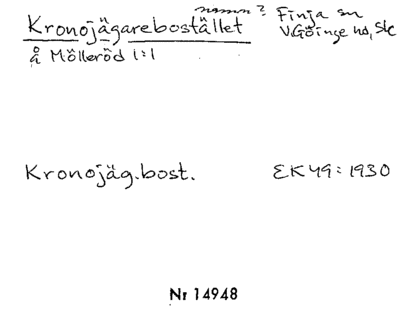 namn? Finja sn
Kronojägarebostället V.Göinge hd, Sk
å Mölleröd 1:1
Kronojäg.bost. EK 49: 1930
Nr 14948